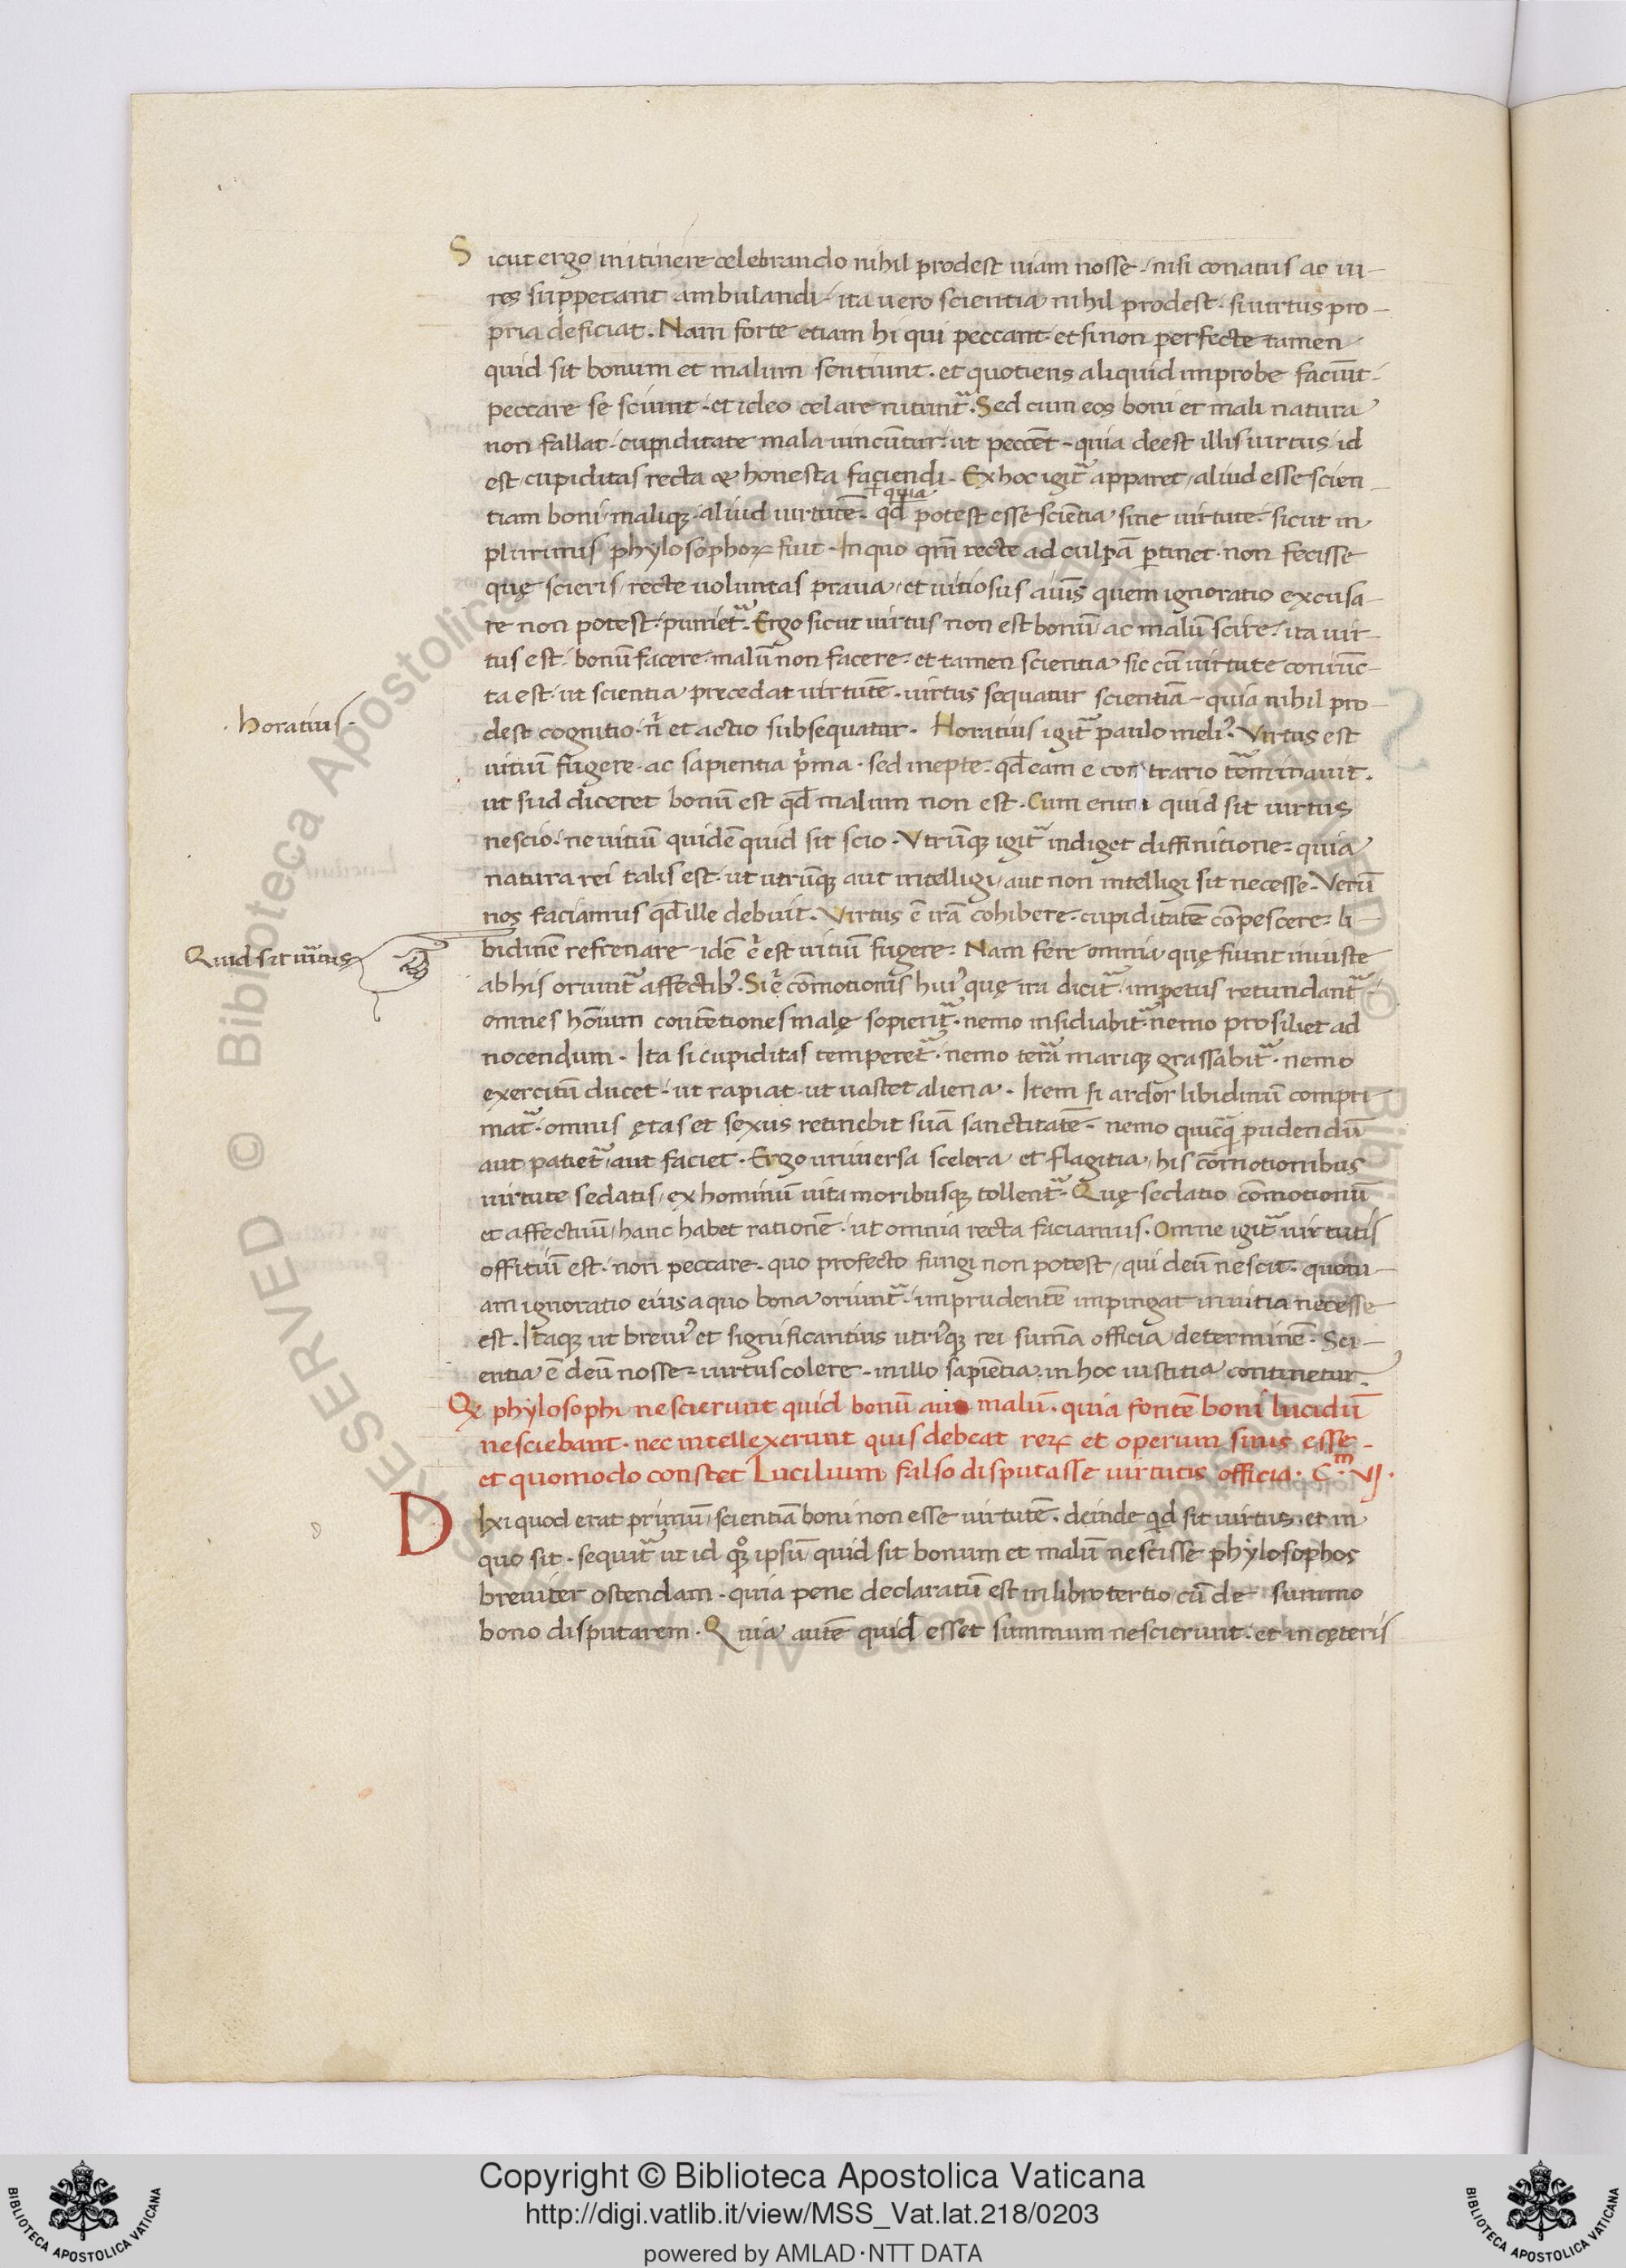 Sicut ergo in itinere celebrando nihil prodest uiam nosse. nisi conatus ac ui-
res suppetant ambulandi. ita uero scientia nihil prodest. si uirtus pro-
pria deficiat. Nam forte etiam hi qui peccant. et si non perfecte tamen
quid sit bonum et malum sentiunt. et quotiens aliquid improbe faciūt.
peccare se sciunt. et ideo celare nitunt᷑. Sed cum eos boni et mali natura
non fallat. cupiditate mala uincūtur. ut peccēt. quia deest illis uirtus id
est cupiditas recta & honesta faciendi. Ex hoc igit᷑ apparet aliud esse scien-
ł quia
tiam boni maliqꝫ. aliud uirtutē. qđ potest esse sciētia sine uirtute. sicut in
plurimis phylosophoꝝ fuit. In quo qm̄ recte ad culpā ꝑtinet. non fecisse
quę scieris. recte uoluntas praua. et uitiosus aīus quem ignoratio excusa-
re non potest. puniet᷑. Ergo sicut uirtus non est bonū ac malū scire. ita uir-
tus est. bonū facere. malū non facere. et tamen scientia sic cū uirtute coniūc-
ta est. ut scientia precedat uirtutē. uirtus sequatur scientiā. quia nihil pro-
dest cognitio. n̄ et actio subsequatur. Horatius igit᷑ paulo meliꝰ. Virtus est
.horatius.
uitiū fugere. ac sapientia p̄ma. sed inepte. qđ eam e contrario t̄minauit.
ut siud diceret bonū est qđ malum non est. Cum enim quid sit uirtus
nescio. ne uitiū quidē quid sit scio. Vtrūqꝫ igit᷑ indiget diffinitione. quia
natura rei talis est. ut utrūqꝫ aut intelligi. aut non intelligi sit necesse. Verū
nos faciamus qđ ille debuit. Virtus ē irā cohibere. cupiditatē cōpescere. li-
Quid sit uirtus
bidinē refrenare. idē ē est uitiū fugere. Nam fere omnia quę fiunt iniuste
ab his oriunt᷑ affectibꝰ. Si ē cōmotionis huiꝰ quę ira dicit᷑. impetus retundant᷑.
omnes hōium contētiones malę sopient᷑. nemo insidiabit᷑. nemo prosiliet ad
nocendum. Ita si cupiditas temperet᷑. nemo terra mariqꝫ grassabit᷑. nemo
exercitū ducet. ut rapiat. ut uastet aliena. Item si ardor libidinū compri
mat᷑. omnis ętas et sexus retinebit suā sanctitatē. nemo quicq̄ pudendū
aut patiet᷑. aut faciet. Ergo uniuersa scelera et flagitia. his cōmotionibus
uirtute sedatis. ex hominū uita moribusqꝫ tollent᷑. Quę sedatio cōmotionū
et affectuū. hanc habet rationē. ut omnia recta faciamus. Omne igit᷑ uirtutis
offitiū est. non peccare. quo profecto fungi non potest. qui deū nescit. quoni-
am ignoratio eius a quo bona oriunt᷑. imprudentē impingat in uitia necesse
est. Itaqꝫ ut breuiꝰ et significantius utriꝰqꝫ rei sum̄a officia determinē. Sci-
entia ē deū nosse. uirtus colere. in illo sapiētia. in hoc iustitia continetur.
Qꝫ phylosophi nescierunt quid bonū aut malū. quia fontē boni lucidū
nesciebant. nec intellexerunt quis debeat reꝝ et operum finis esse.
et quomodo constet Lucilium falso disputasse uirtutis officia. C.m VJ.
Dixi quod erat primū. scientiā boni non esse uirtutē. deinde qd sit uirtus. et in
quo sit. sequit᷑ ut id qꝫ ipsū quid sit bonum et malū nescisse phylosophos
breuiter ostendam. quia pene declaratū est in libro tertio. cū de summo
bono disputarem. Quia autē quid esset summum nescierunt. et in cęteris
Copyright © Biblioteca Apostolica Vaticana
http://digi.vatlib.it/view/MSS_Vat.lat.218/0203
powered by AMLAD·NTT DATA
BIBLIOTECA APOSTOLICA VATICANA
BIBLIOTECA APOSTOLICA VATICANA